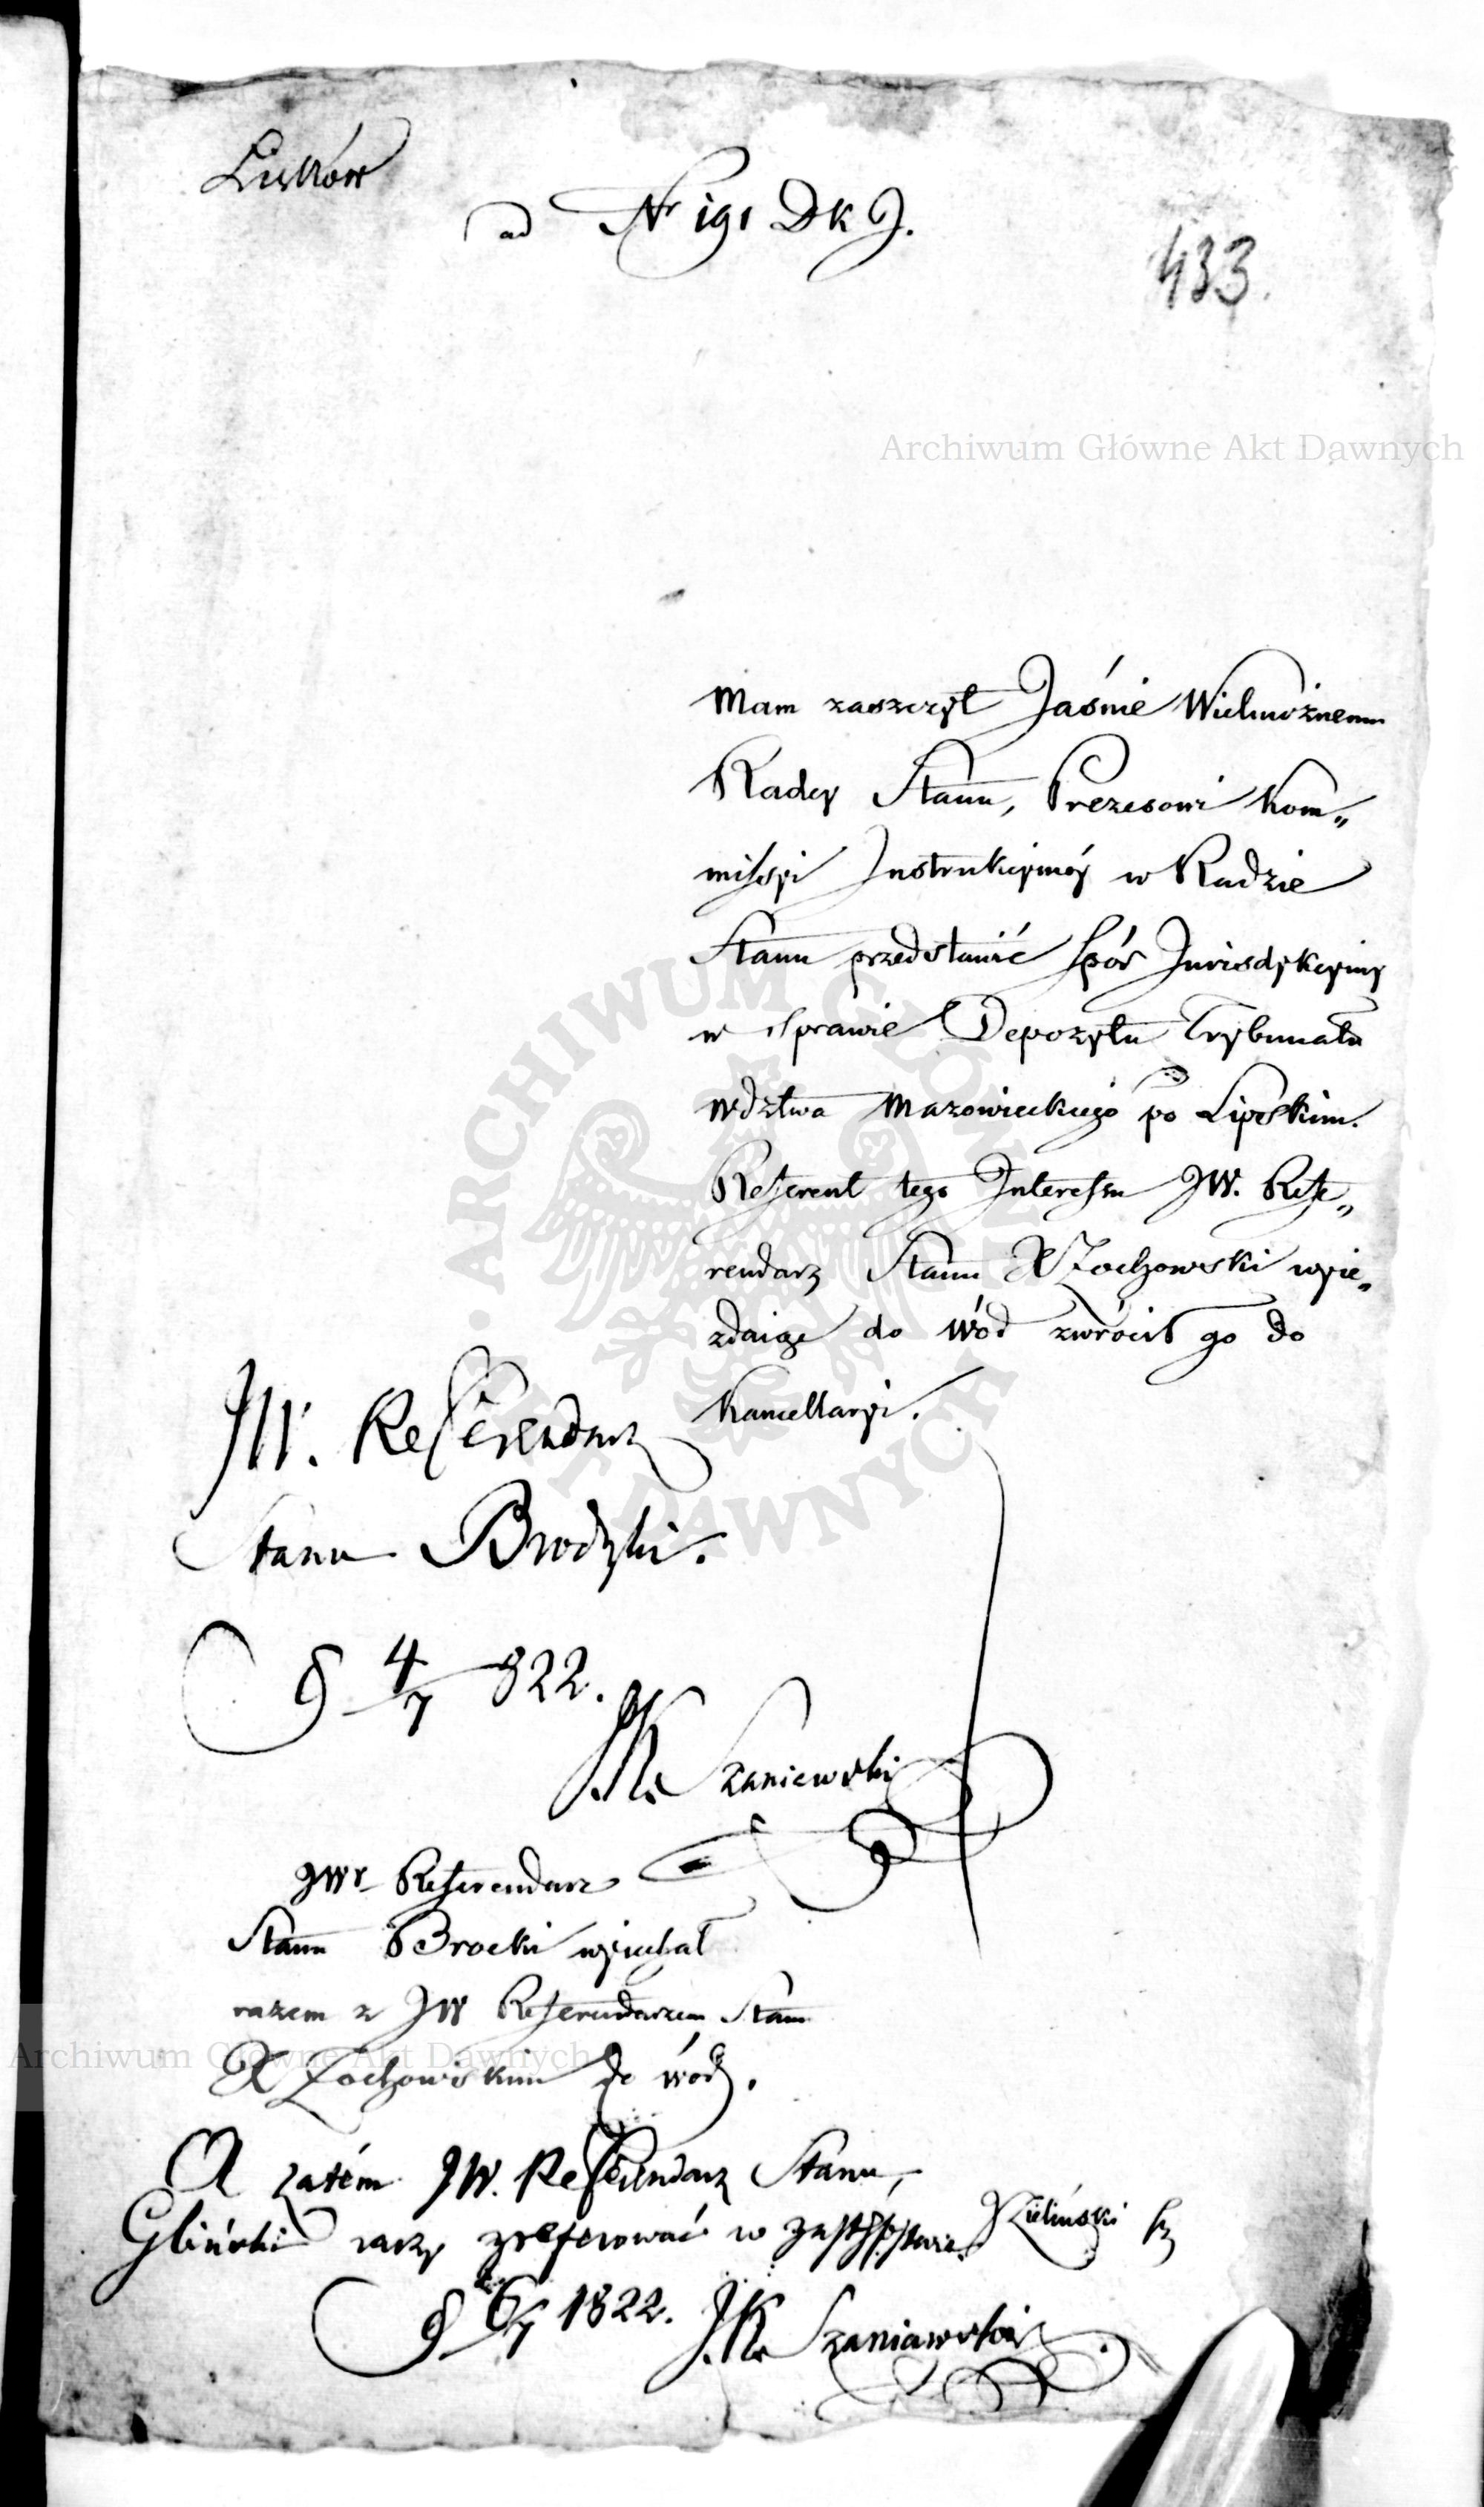 ad Nr 191 D K J.
433.
Archiwum Główne Akt Dawnych
Mam zaszczyt Jaśnie Wielmożnemu
Radcy Stanu, Prezesowi Kom„
missyi Instrukcyinéy w Radzie
Stanu przedstawić spór Jurisdykcyiny
w sprawie Depozytu Trybunału
wdztwa Mazowieckiego po Lipskim.
Referent tego Interessu JW. Refe„
rendarz Stanu X Żochowski wyie„
zdaiąc do wód zwrócił go do
Kancellaryi.
JW. Referendarz
Stanu Brodzki.
d 4/7 822.
J. K. Szaniawski
JWy Referendarz
Stanu Brocki wyiechał
razem z JW Referendarzem Stanu
X Żochowskim do wód.
A zatém JW. Referendarz Stanu,
Gliński raczy zreferować w zastępstwie.
Zieliński
d 6/7 1822. J. K. Szaniawski
ARCHIWUM GŁÓWNE AKT DAWNYCH
Archiwum Główne Akt Dawnych